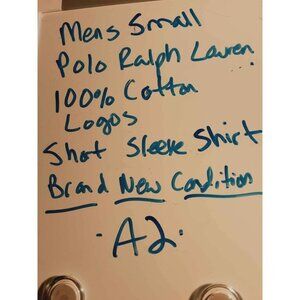 Mens Small
Polo Ralph Lauren
100% Cotton
Logos
Shot Sleeve Shirt
Brand New Condition
·A2·